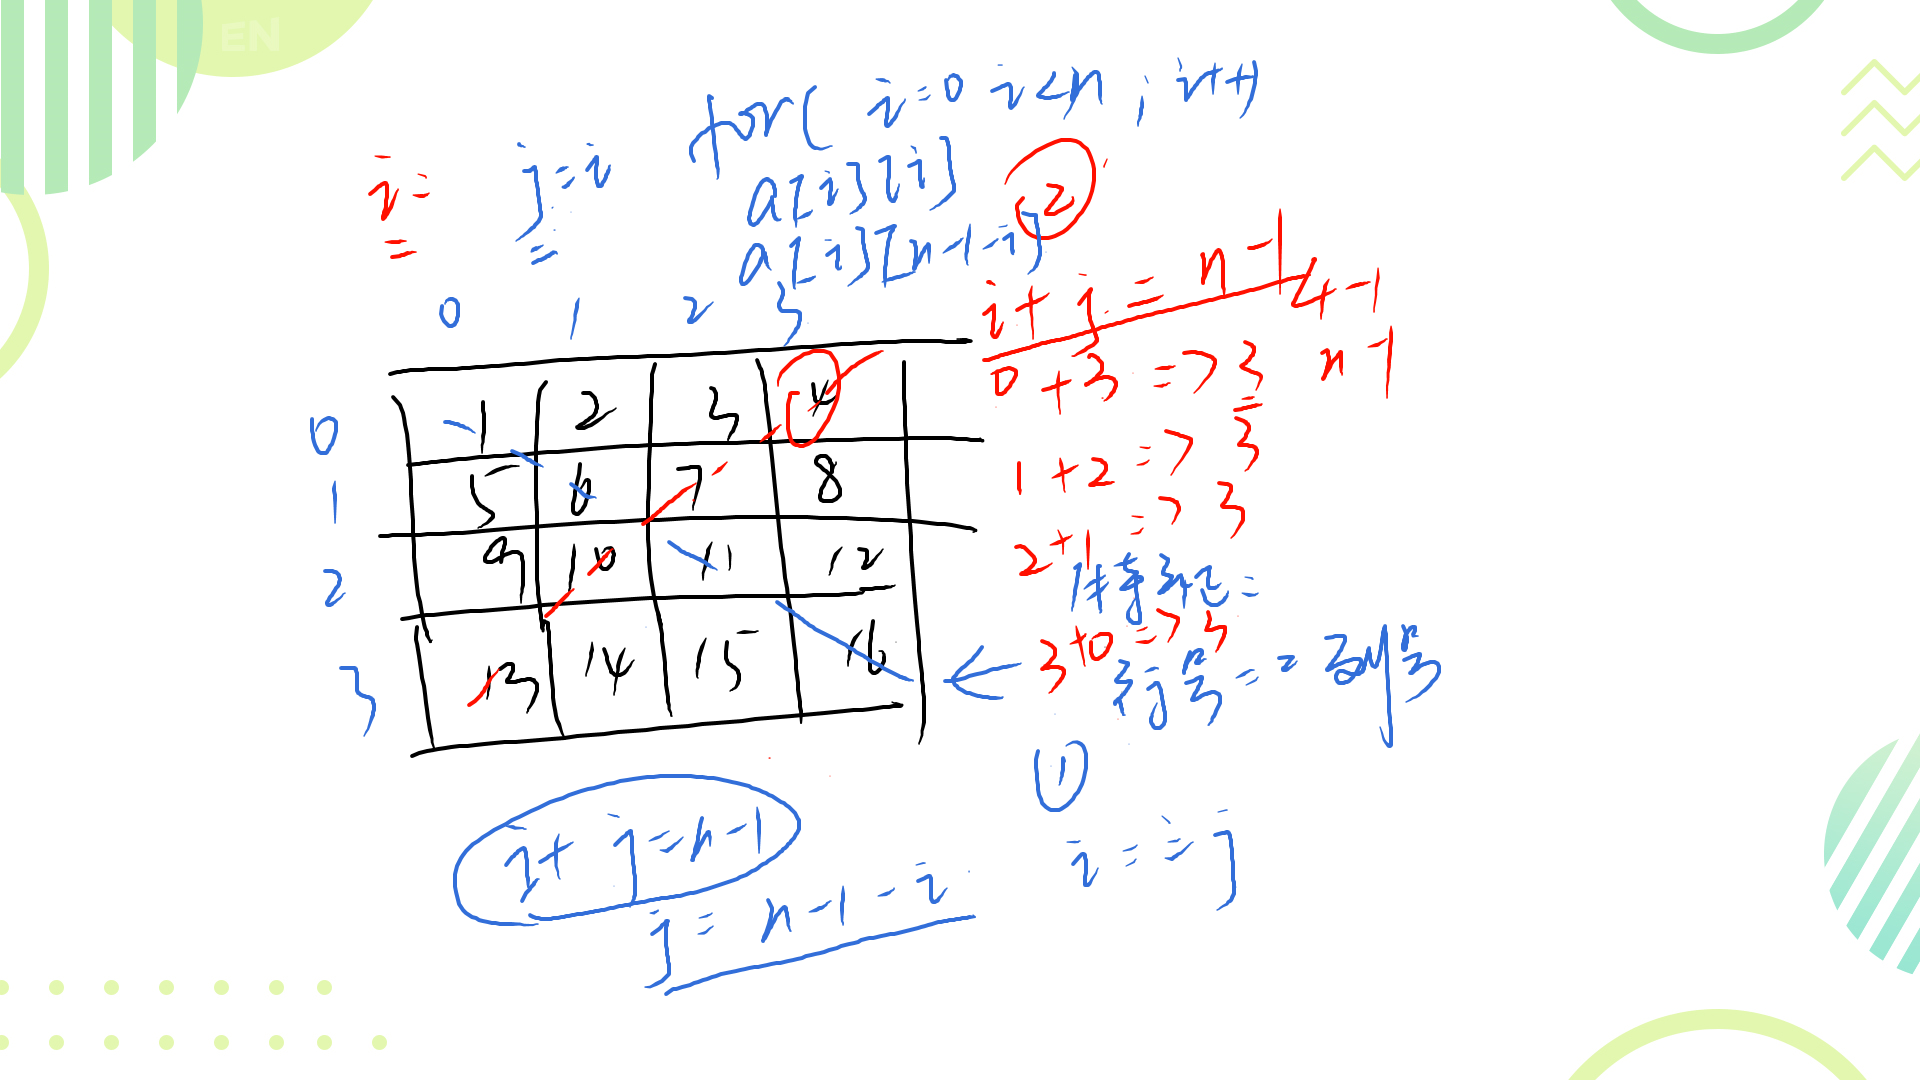 EN
for( i=0 i<n ; i++)
i= j=i a[i][i] ②
= = a[i][n-1-i]
i+j=n-1 4-1
0 1 2 3
0+3=>3 n-1
0 1 2 3 4
1+2=>3
1 5 6 7 8
2+1=>3
2 9 10 11 12
3+0=>3
行号==列号
3 13 14 15 16
①
i+j=n-1
i==j
j=n-1-i